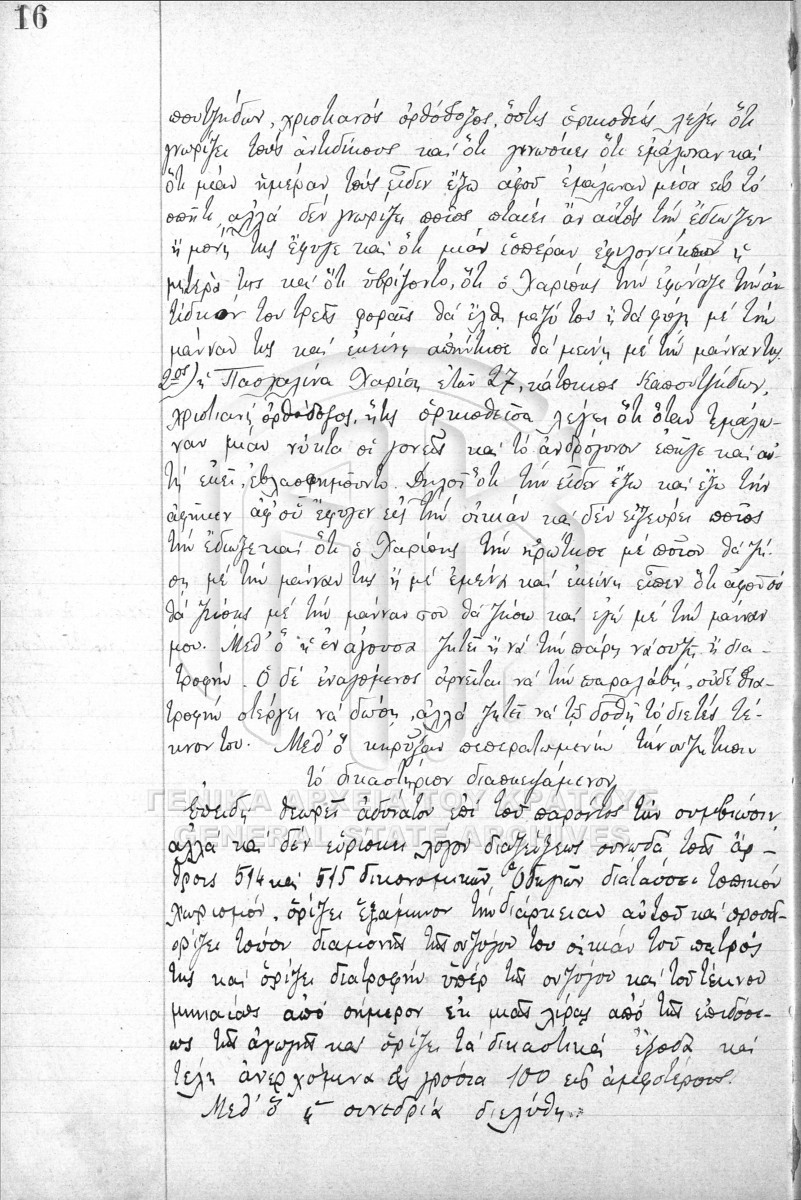 16
πουτζήδων, χριστιανός ὀρθόδοξος, ὅστις ὁρκισθείς λέγει ὅτι
γνωρίζει τούς ἀντιδίκους καί ὅτι γινώσκει ὅτι ἐμάλωναν καί
ὅτι μίαν ἡμέραν τούς εἶδεν ἔξω ἀφοῦ ἐμάλωναν μέσα εἰς τό
σπῆτι, ἀλλά δέν γνωρίζει ποῖος πταίει ἄν αὐτός τήν ἔδιωξεν
ἤ μόνη της ἔφυγε καί ὅτι μίαν ἑσπέραν ἐφιλονείκουν ἡ
μητέρα της καί ὅτι ὑβρίζοντο, ὅτι ὁ Χαρίσης τήν ἐφώναξε τήν ἀν
τίδικόν του τρεῖς φοραῖς θά ἔλθῃ μαζύ του ἤ θά φύγῃ μέ τήν
μάνναν της καί ἐκείνη ἀπήντησε θά μείνῃ μέ τήν μάνναν της.
2ος) ἡ Πασχαλίνα Χαρίση ἐτῶν 27, κάτοικος Καπουτζήδων,
χριστιανή ὀρθόδοξος, ἥτις ὁρκισθεῖσα λέγει ὅτι ὅταν ἐμάλω-
ναν μίαν νύκτα οἱ γονεῖς καί τό ἀνδρόγυνον ἐπῆγε καί αὐ-
τή ἐκεῖ, ἐβλασφημοῦντο. Δηλοῖ ὅτι τήν εἶδεν ἔξω καί ἔξω τήν
ἀφῆκεν ἀφ' οὗ ἔφυγεν εἰς τήν οἰκίαν καί δέν εἰξεύρει ποῖος
τήν ἔδιωξε καί ὅτι ὁ Χαρίσης τήν ἠρώτησε μέ ποῖον θά ζή-
σῃ μέ τήν μάνναν της ἤ μέ ἐμένα καί ἐκείνη εἶπεν ὅτι ἀφοῦ σύ
θά ζήσῃς μέ τήν μάνναν σου θά ζήσω καί ἐγώ μέ τήν μάνναν
μου. Μεθ' ὅ ἡ ἐνάγουσα ζητεῖ ἤ νά τήν πάρῃ νά συζῇ ἤ δια-
τροφήν. Ὁ δέ ἐναγόμενος ἀρνεῖται νά τήν παραλάβῃ, οὐδέ δια-
τροφήν στέργει νά δώσῃ, ἀλλά ζητεῖ νά τῷ δοθῇ τό διετές τέ-
κνον του. Μεθ' ὅ κηρύξαν πεπερατωμένην τήν συζήτησιν
τό δικαστήριον διασκεψάμενον
Ἐπειδή θεωρεῖ ἀδύνατον ἐπί τοῦ παρόντος τήν συμβίωσιν
ἀλλά καί δέν εὑρίσκει λόγον διαζεύξεως συνῳδά τοῖς ἄρ-
θροις 514 καί 515 δικονομικῶν Ὁδηγιῶν διατάσσει τοπικόν
χωρισμόν, ὁρίζει ἑξάμηνον τήν διάρκειαν αὐτοῦ καί προσδι-
ορίζει τόπον διαμονῆς τῆς συζύγου του οἰκίαν τοῦ πατρός
της καί ὁρίζει διατροφήν ὑπέρ τῆς συζύγου καί τοῦ τέκνου
μηνιαίως ἀπό σήμερον ἐκ μιᾶς λίρας ἀπό τῆς ἐπιδόσε-
ως τῆς ἀγωγῆς καί ὁρίζει τά δικαστικά ἔξοδα καί
τέλη ἀνερχόμενα εἰς γρόσια 100 εἰς ἀμφοτέρους.
Μεθ' ὅ ἡ συνεδρία διελύθη.
ΓΕΝΙΚΑ ΑΡΧΕΙΑ ΤΟΥ ΚΡΑΤΟΥΣ
GENERAL STATE ARCHIVES